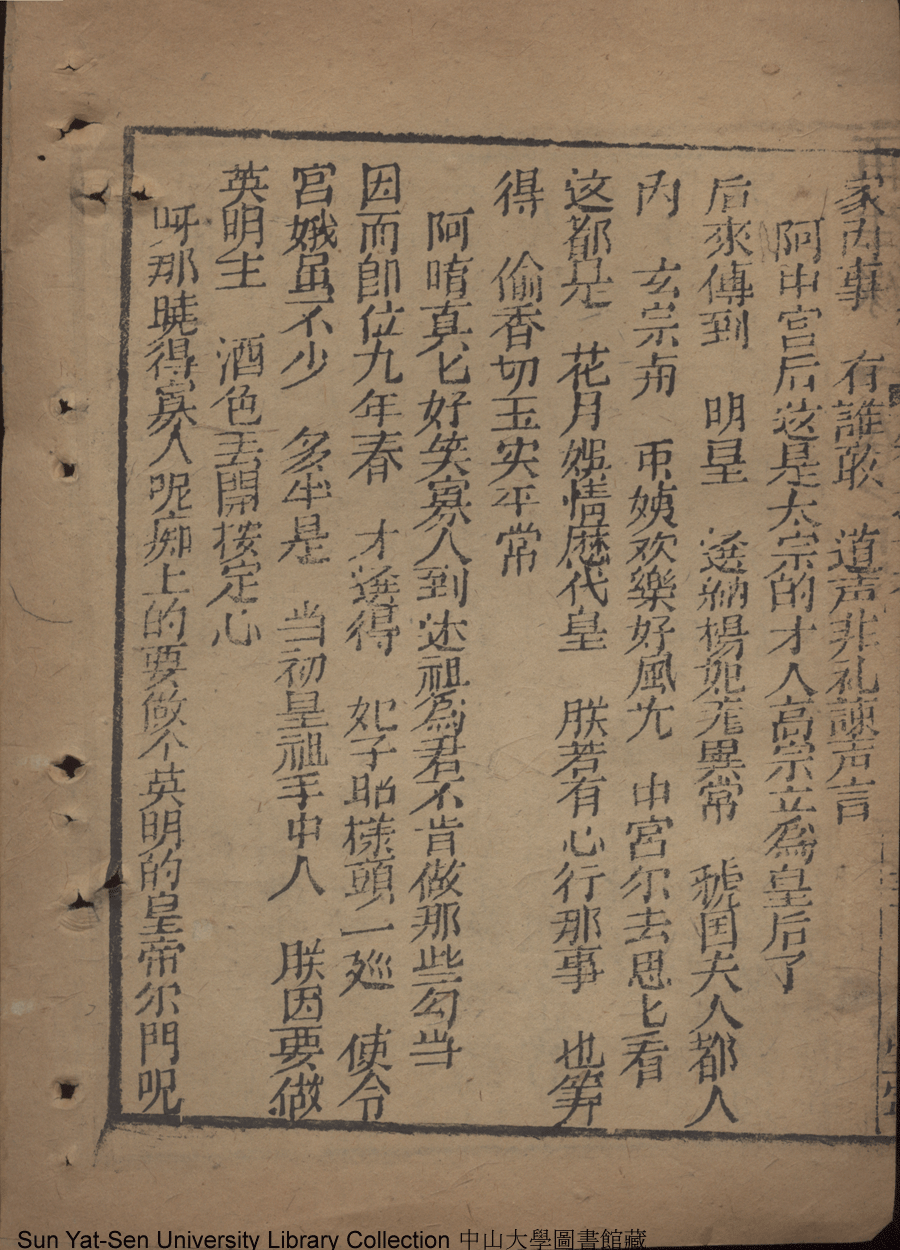 家内事　有誰敢　道声非礼諫声言
阿中宫后这是太宗的才人高宗立為皇后了
后來傳到　明皇　送納楊妃寵異常　虢国夫人都人
内　玄宗甫　帀姨欢樂好風光　中宮尔去思匕看
这都是　花月娯情歷代皇　朕若有心行那事　也筭
得　偷香切玉实平常
阿唷真匕好笑寡人到达祖為君不肯做那些勾当
因而即位九年春　才選得　妃子昭様頭一廵　使令
宫娥虽不少　多半是　当初皇祖手中人　朕因要做
英明主　酒色丢開按定心
呀那曉得寡人呢痴上的要做个英明的皇帝尔門呢
Sun Yat-Sen University Library Collection 中山大學圖書館藏